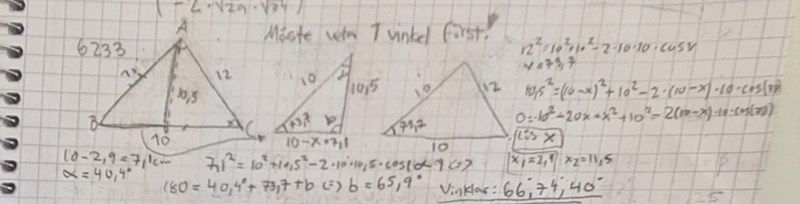 6233
Måste veta 1 vinkel först!
A
12
10,5
B
C
10
10
10,5
73,7
b
10-x=7,1
10
12
73,7
10
12²=10²+10²-2·10·10·cosv
v=73,7
10,5²=(10-x)²+10²-2·(10-x)·10·cos(73)
0=10²-20x+x²+10²-2(10-x)·10·cos(73)
Lös x
x₁=2,9 x₂=11,5
10-2,9=7,1cm
α=40,4°
7,1²=10²+10,5²-2·10·10,5·cos(α) (=)
180=40,4°+73,7+b (=) b=65,9°
Vinklar: 66°, 74°, 40°